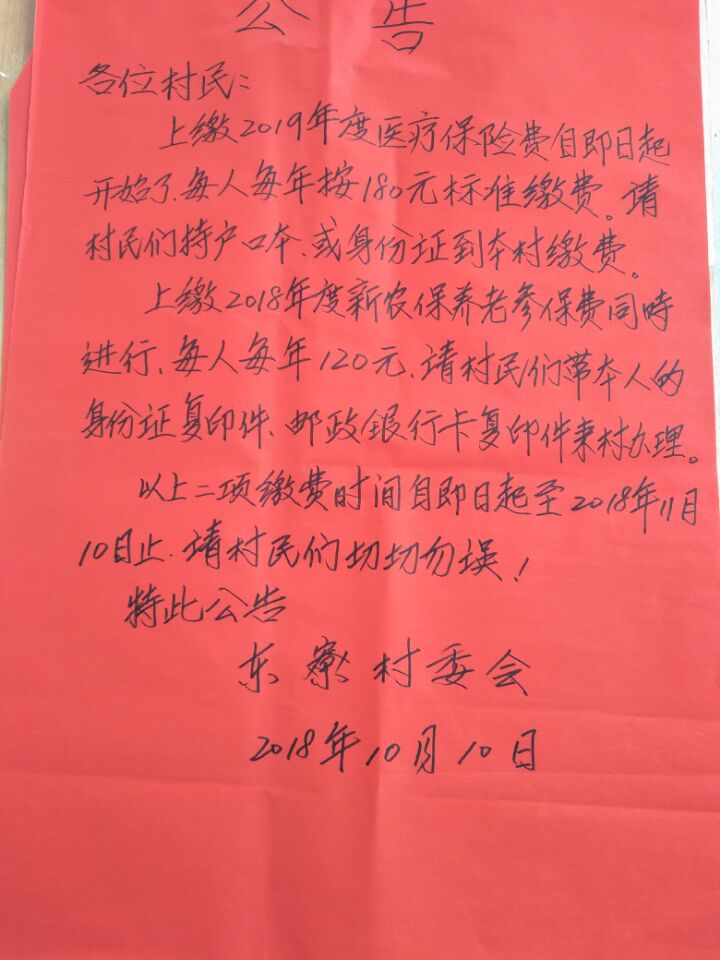 公告
各位村民：
上缴2019年度医疗保险费自即日起
开始了、每人每年按180元标准缴费。请
村民们持户口本、或身份证到本村缴费。
上缴2018年度新农保养老参保费同时
进行、每人每年120元、请村民们带本人的
身份证复印件、邮政银行卡复印件来村办理。
以上二项缴费时间自即日起至2018年11月
10日止.请村民们切切勿误！
特此公告
东寮村委会
2018年10月10日